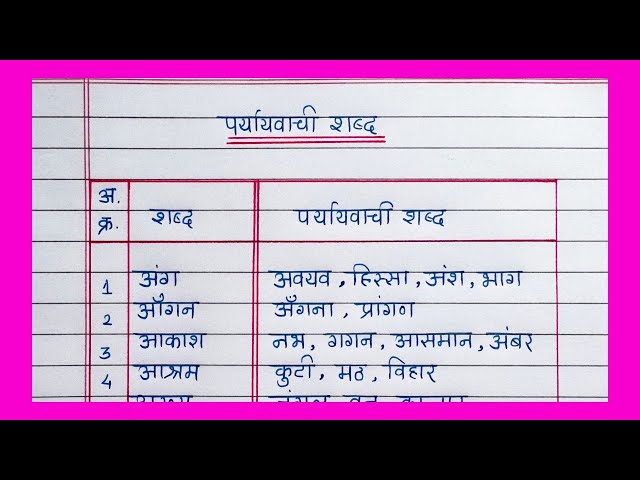 पर्यायवाची शब्द
अ. क्र. शब्द पर्यायवाची शब्द
1 अंग अवयव, हिस्सा, अंश, भाग
2 आँगन अँगना, प्रांगण
3 आकाश नभ, गगन, आसमान, अंबर
4 आश्रम कुटी, मठ, विहार